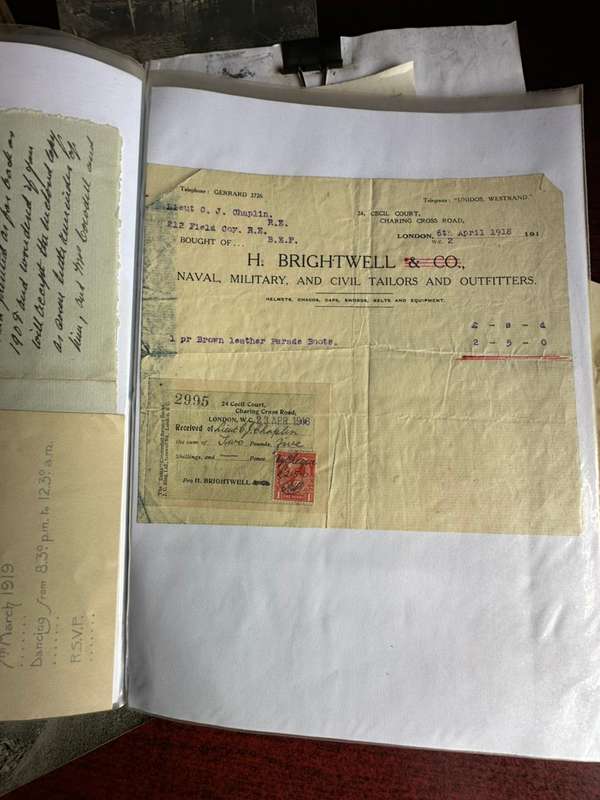 1908 and wondered if you
will accept the enclosed copy
him, and Mrs Cowdell and
7th March 1919
Dancing from 8.30 p.m. to 12.30 a.m.
R.S.V.P.
Telephone: GERRARD 3726.
Telegrams: "UNIDOS, WESTRAND."
Lieut C. J. Chaplin.
R.E.
212 Field Coy. R.E.
B.E.F.
24, CECIL COURT,
CHARING CROSS ROAD,
LONDON, 6th April 1918 191
W.C. 2
BOUGHT OF...
H. BRIGHTWELL & CO.,
NAVAL, MILITARY, AND CIVIL TAILORS AND OUTFITTERS.
HELMETS, CHACOS, CAPS, SWORDS, BELTS AND EQUIPMENT.
£ - s - d
1 pr Brown leather Parade Boots. 2 - 5 - 0
2995
24 Cecil Court,
Charing Cross Road,
LONDON, W.C. 23 APR 1918
Received of Lieut C J Chaplin
the sum of Two Pounds, five
Shillings, and — Pence
Pro H. BRIGHTWELL & CO.